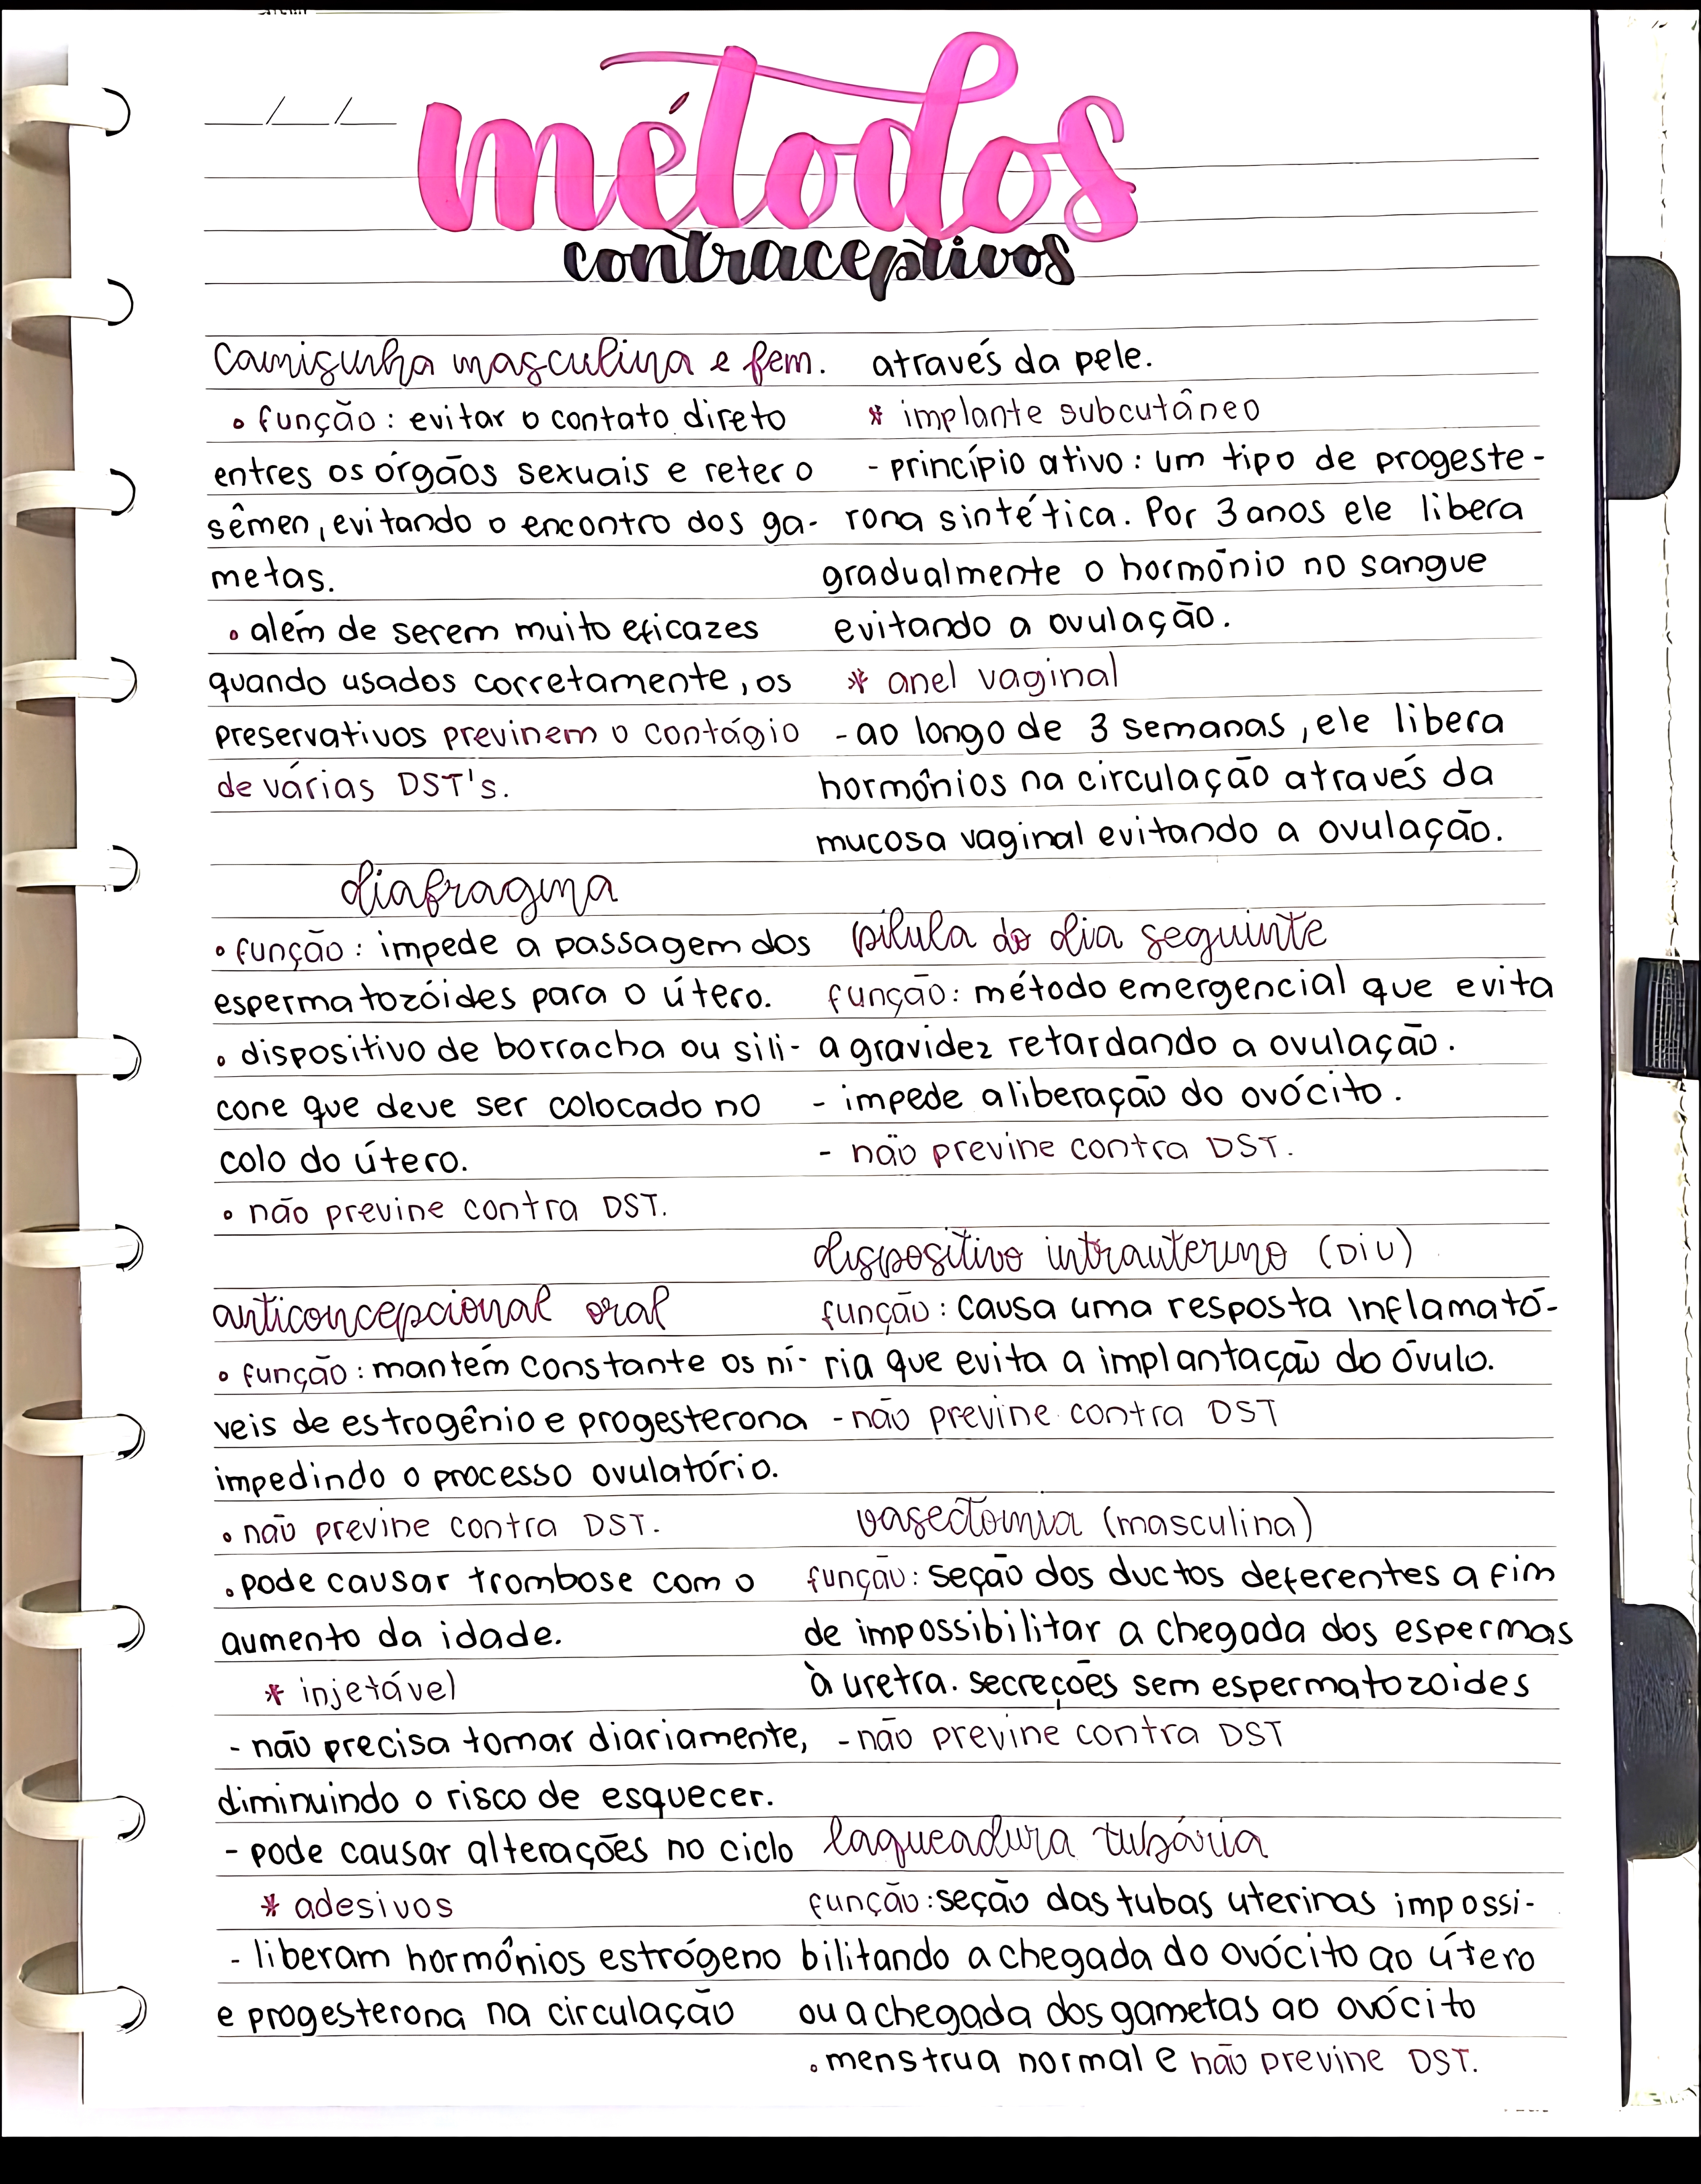 __/__/__
métodos
contraceptivos
camisinha masculina e fem.
• função: evitar o contato direto
entres os órgãos sexuais e reter o
sêmen, evitando o encontro dos ga-
metas.
• além de serem muito eficazes
quando usados corretamente, os
preservativos previnem o contágio
de várias DST's.
diafragma
• função: impede a passagem dos
espermatozóides para o útero.
• dispositivo de borracha ou sili-
cone que deve ser colocado no
colo do útero.
• não previne contra DST.
anticoncepcional oral
• função: mantém constante os ní-
veis de estrogênio e progesterona
impedindo o processo ovulatório.
• não previne contra DST.
• pode causar trombose com o
aumento da idade.
* injetável
- não precisa tomar diariamente,
diminuindo o risco de esquecer.
- pode causar alterações no ciclo
* adesivos
- liberam hormônios estrógeno
e progesterona na circulação
através da pele.
* implante subcutâneo
- princípio ativo: um tipo de progeste-
rona sintética. Por 3 anos ele libera
gradualmente o hormônio no sangue
evitando a ovulação.
* anel vaginal
- ao longo de 3 semanas, ele libera
hormônios na circulação através da
mucosa vaginal evitando a ovulação.
pílula do dia seguinte
função: método emergencial que evita
a gravidez retardando a ovulação.
- impede a liberação do ovócito.
- não previne contra DST.
dispositivo intrauterino (DIU)
função: causa uma resposta inflamató-
ria que evita a implantação do óvulo.
- não previne contra DST
vasectomia (masculina)
função: seção dos ductos deferentes a fim
de impossibilitar a chegada dos espermas
à uretra. secreções sem espermatozoides
- não previne contra DST
laqueadura tubária
função: seção das tubas uterinas impossi-
bilitando a chegada do ovócito ao útero
ou a chegada dos gametas ao ovócito
• menstrua normal e não previne DST.